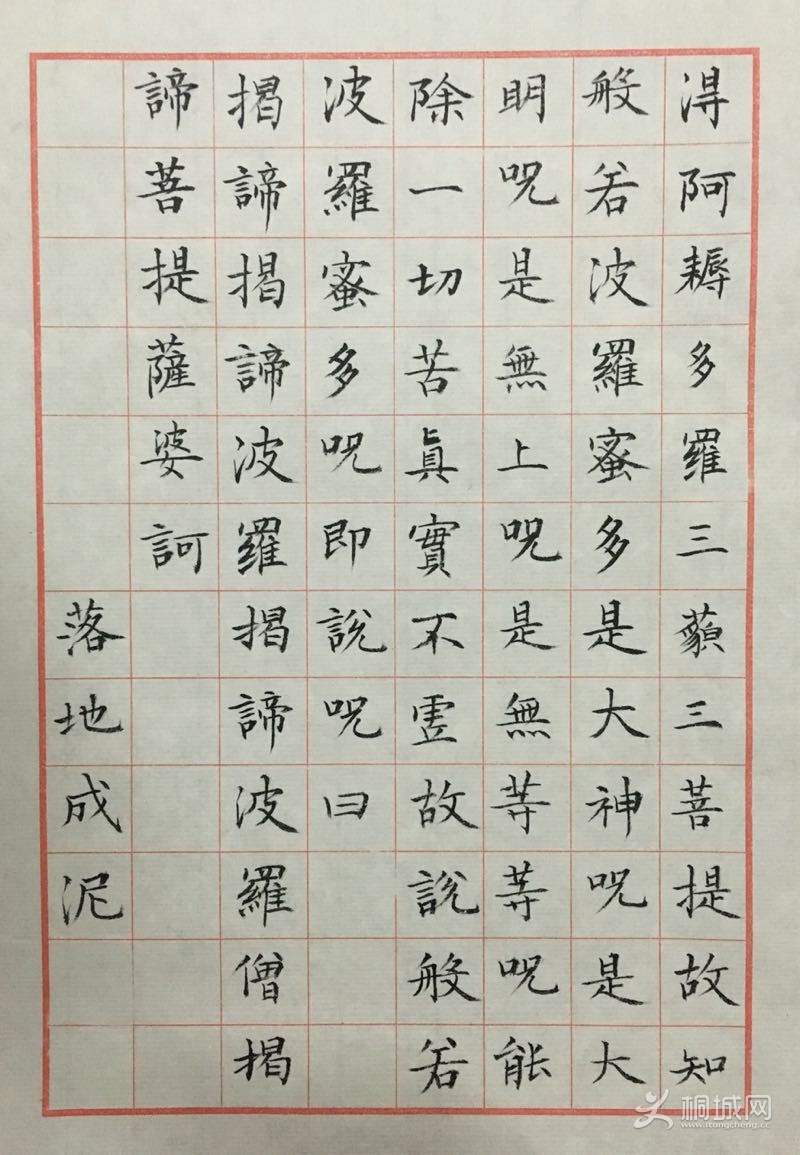 淂阿耨多羅三藐三菩提故知
般若波羅蜜多是大神呪是大
明呪是無上呪是無等等呪能
除一切苦真實不虛故說般若
波羅蜜多呪即說呪曰
揭諦揭諦波羅揭諦波羅僧揭
諦菩提薩婆訶
落地成泥
桐城网
www.itongcheng.cc